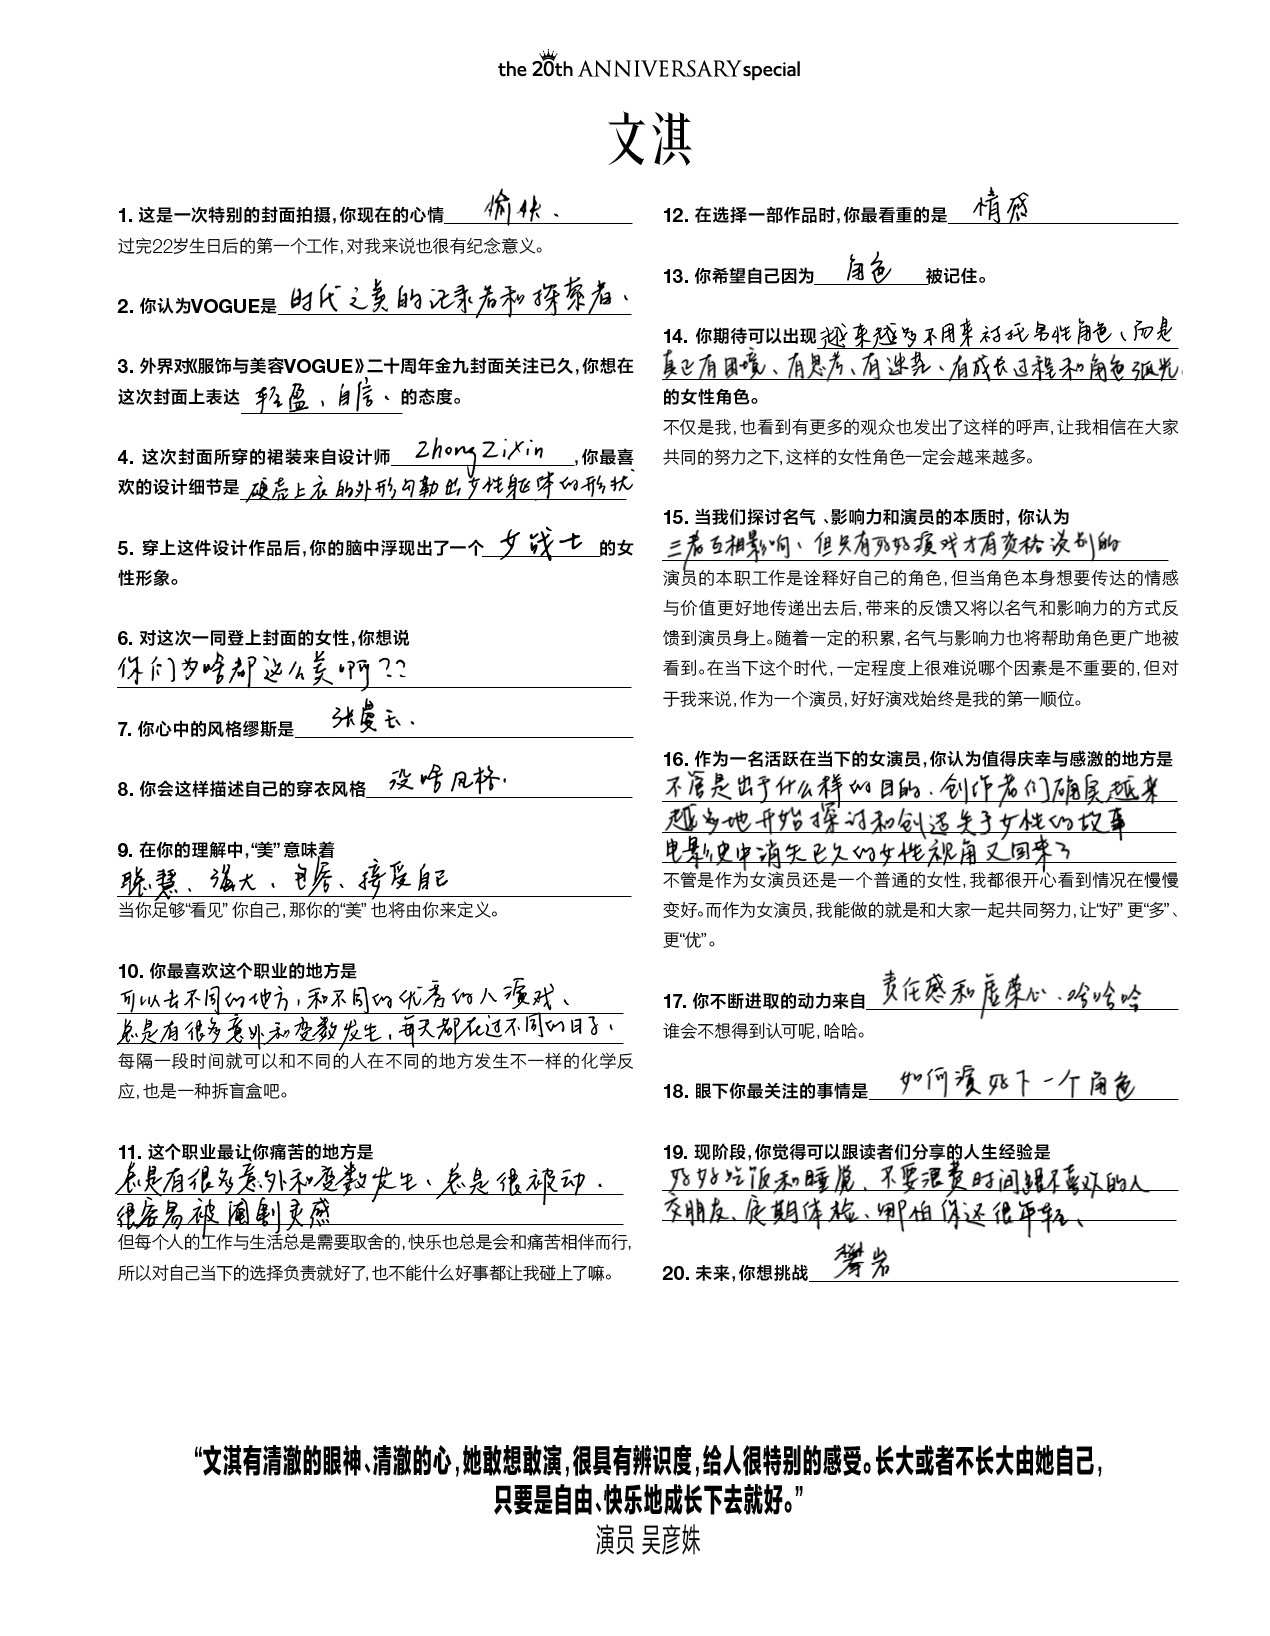 the 20th ANNIVERSARY special
文淇
1. 这是一次特别的封面拍摄,你现在的心情 愉快、
过完22岁生日后的第一个工作,对我来说也很有纪念意义。
2. 你认为VOGUE是 时代之美的记录者和探索者、
3. 外界对《服饰与美容VOGUE》二十周年金九封面关注已久,你想在
这次封面上表达 轻盈、自信、 的态度。
4. 这次封面所穿的裙装来自设计师 Zhong Zixin ,你最喜
欢的设计细节是 硬壳上衣的外形勾勒出女性躯体的形状
5. 穿上这件设计作品后,你的脑中浮现出了一个 女战士 的女
性形象。
6. 对这次一同登上封面的女性,你想说
你们为啥都这么美啊??
7. 你心中的风格缪斯是 张曼玉.
8. 你会这样描述自己的穿衣风格 没啥风格.
9. 在你的理解中,“美”意味着
聪慧、强大、包容、接受自己
当你足够“看见”你自己,那你的“美”也将由你来定义。
10. 你最喜欢这个职业的地方是
可以去不同的地方,和不同的优秀的人演戏、
总是有很多意外和变数发生,每天都在过不同的日子.
每隔一段时间就可以和不同的人在不同的地方发生不一样的化学反
应,也是一种拆盲盒吧。
11. 这个职业最让你痛苦的地方是
总是有很多意外和变数发生、总是很被动.
很容易被阉割灵感
但每个人的工作与生活总是需要取舍的,快乐也总是会和痛苦相伴而行,
所以对自己当下的选择负责就好了,也不能什么好事都让我碰上了嘛。
12. 在选择一部作品时,你最看重的是 情感
13. 你希望自己因为 角色 被记住。
14. 你期待可以出现 越来越多不用来衬托男性角色、而是
真正有困境、有思考、有迷茫、有成长过程和角色弧光
的女性角色。
不仅是我,也看到有更多的观众也发出了这样的呼声,让我相信在大家
共同的努力之下,这样的女性角色一定会越来越多。
15. 当我们探讨名气、影响力和演员的本质时, 你认为
三者互相影响、但只有好好演戏才有资格谈别的
演员的本职工作是诠释好自己的角色,但当角色本身想要传达的情感
与价值更好地传递出去后,带来的反馈又将以名气和影响力的方式反
馈到演员身上。随着一定的积累,名气与影响力也将帮助角色更广地被
看到。在当下这个时代,一定程度上很难说哪个因素是不重要的,但对
于我来说,作为一个演员,好好演戏始终是我的第一顺位。
16. 作为一名活跃在当下的女演员,你认为值得庆幸与感激的地方是
不管是出于什么样的目的、创作者们确实越来
越多地开始探讨和创造关于女性的故事
电影史中消失已久的女性视角又回来了
不管是作为女演员还是一个普通的女性,我都很开心看到情况在慢慢
变好。而作为女演员,我能做的就是和大家一起共同努力,让“好”更“多”、
更“优”。
17. 你不断进取的动力来自 责任感和虚荣心.哈哈哈
谁会不想得到认可呢,哈哈。
18. 眼下你最关注的事情是 如何演好下一个角色
19. 现阶段,你觉得可以跟读者们分享的人生经验是
好好吃饭和睡觉、不要浪费时间跟不喜欢的人
交朋友、定期体检、哪怕你还很年轻、
20. 未来,你想挑战 攀岩
“文淇有清澈的眼神、清澈的心,她敢想敢演,很具有辨识度,给人很特别的感受。长大或者不长大由她自己,
只要是自由、快乐地成长下去就好。”
演员 吴彦姝